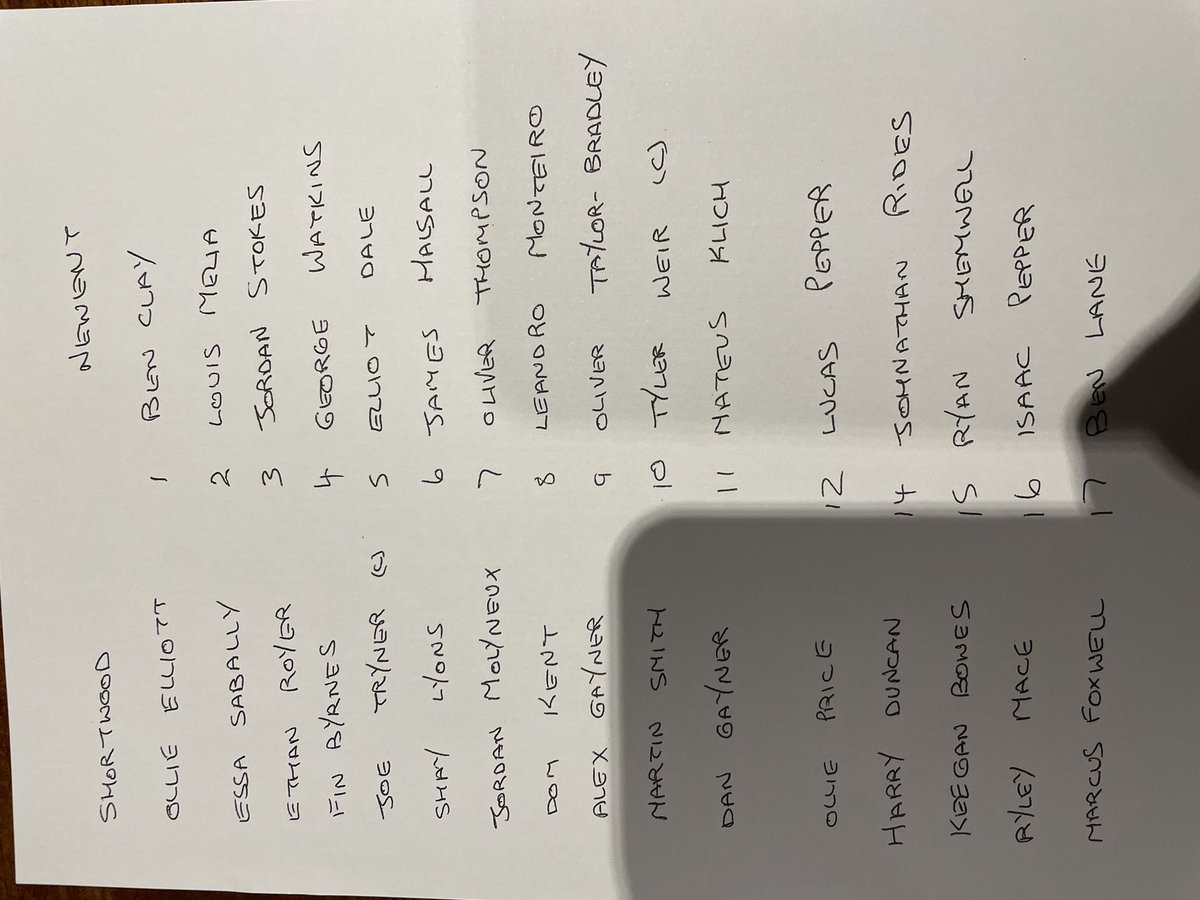 SHORTWOOD NEWENT
OLLIE ELLIOTT 1 BEN CLAY
ESSA SABALLY 2 LOUIS MELIA
ETHAN ROYER 3 JORDAN STOKES
FIN BYRNES 4 GEORGE WATKINS
JOE TRYNER (C) 5 ELLIOT DALE
SHAY LYONS 6 JAMES HALSALL
JORDAN MOLYNEUX 7 OLIVER THOMPSON
DOM KENT 8 LEANDRO MONTEIRO
ALEX GAYNER 9 OLIVER TAYLOR-BRADLEY
MARTIN SMITH 10 TYLER WEIR (C)
DAN GAYNER 11 MATEUS KLICH
OLLIE PRICE 12 LUCAS PEPPER
HARRY DUNCAN 14 JOHNATHAN RIDES
KEEGAN BOWES 15 RYAN SHEMWELL
RYLEY MACE 16 ISAAC PEPPER
MARCUS FOXWELL 17 BEN LANE